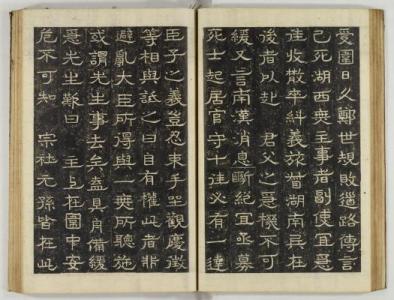 憂圍日久鄭世規敗道路傳言
已死湖西無主事者副使宜急
往收散卒糾義旅督湖南兵在
後者以赴 君父之急機不可
緩又言南漢消息斷絕宜亟募
死士起居官守十往必有一達
臣子之義豈忍束手坐觀慶徵
等相與詆之曰自有此者非
避亂大臣所得與一無所聽施
或謂先生事去矣盍具舟備緩
急先生歎曰 主上在圍中安
危不可知 宗社元孫皆在此